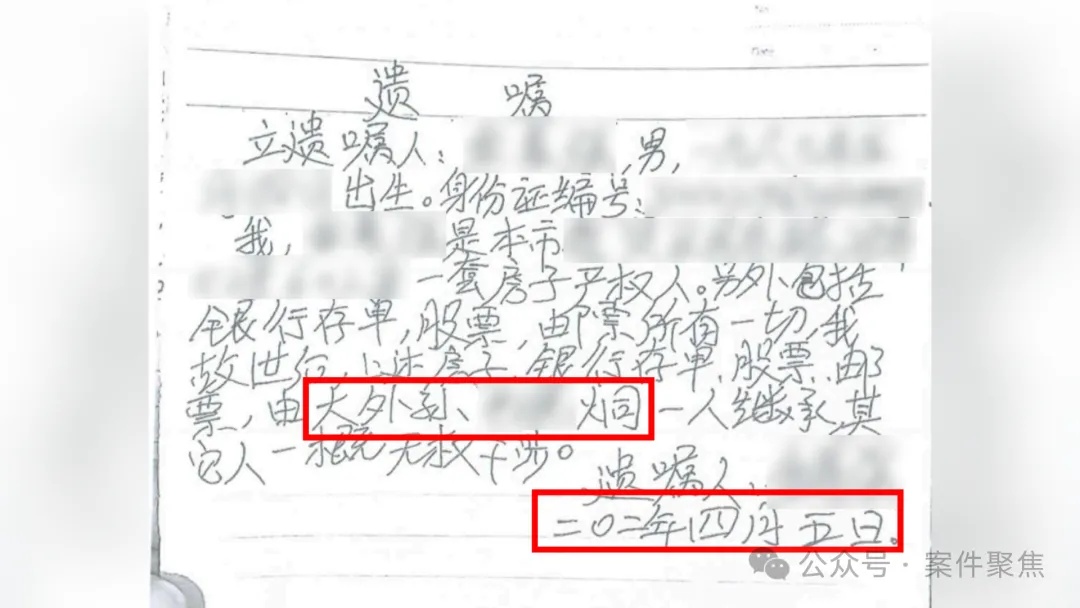 遗 嘱
立遗嘱人: 男,
出生。身份证编号:
我, 是本市
一套房子产权人。另外包括
银行存单,股票,邮票所有一切,我
故世后,上述房子、银行存单、股票、邮
票,由大外孙、 炯一人继承,其
它人一概无权干涉。
遗嘱人:
二〇二年四月五日。
公众号·案件聚焦